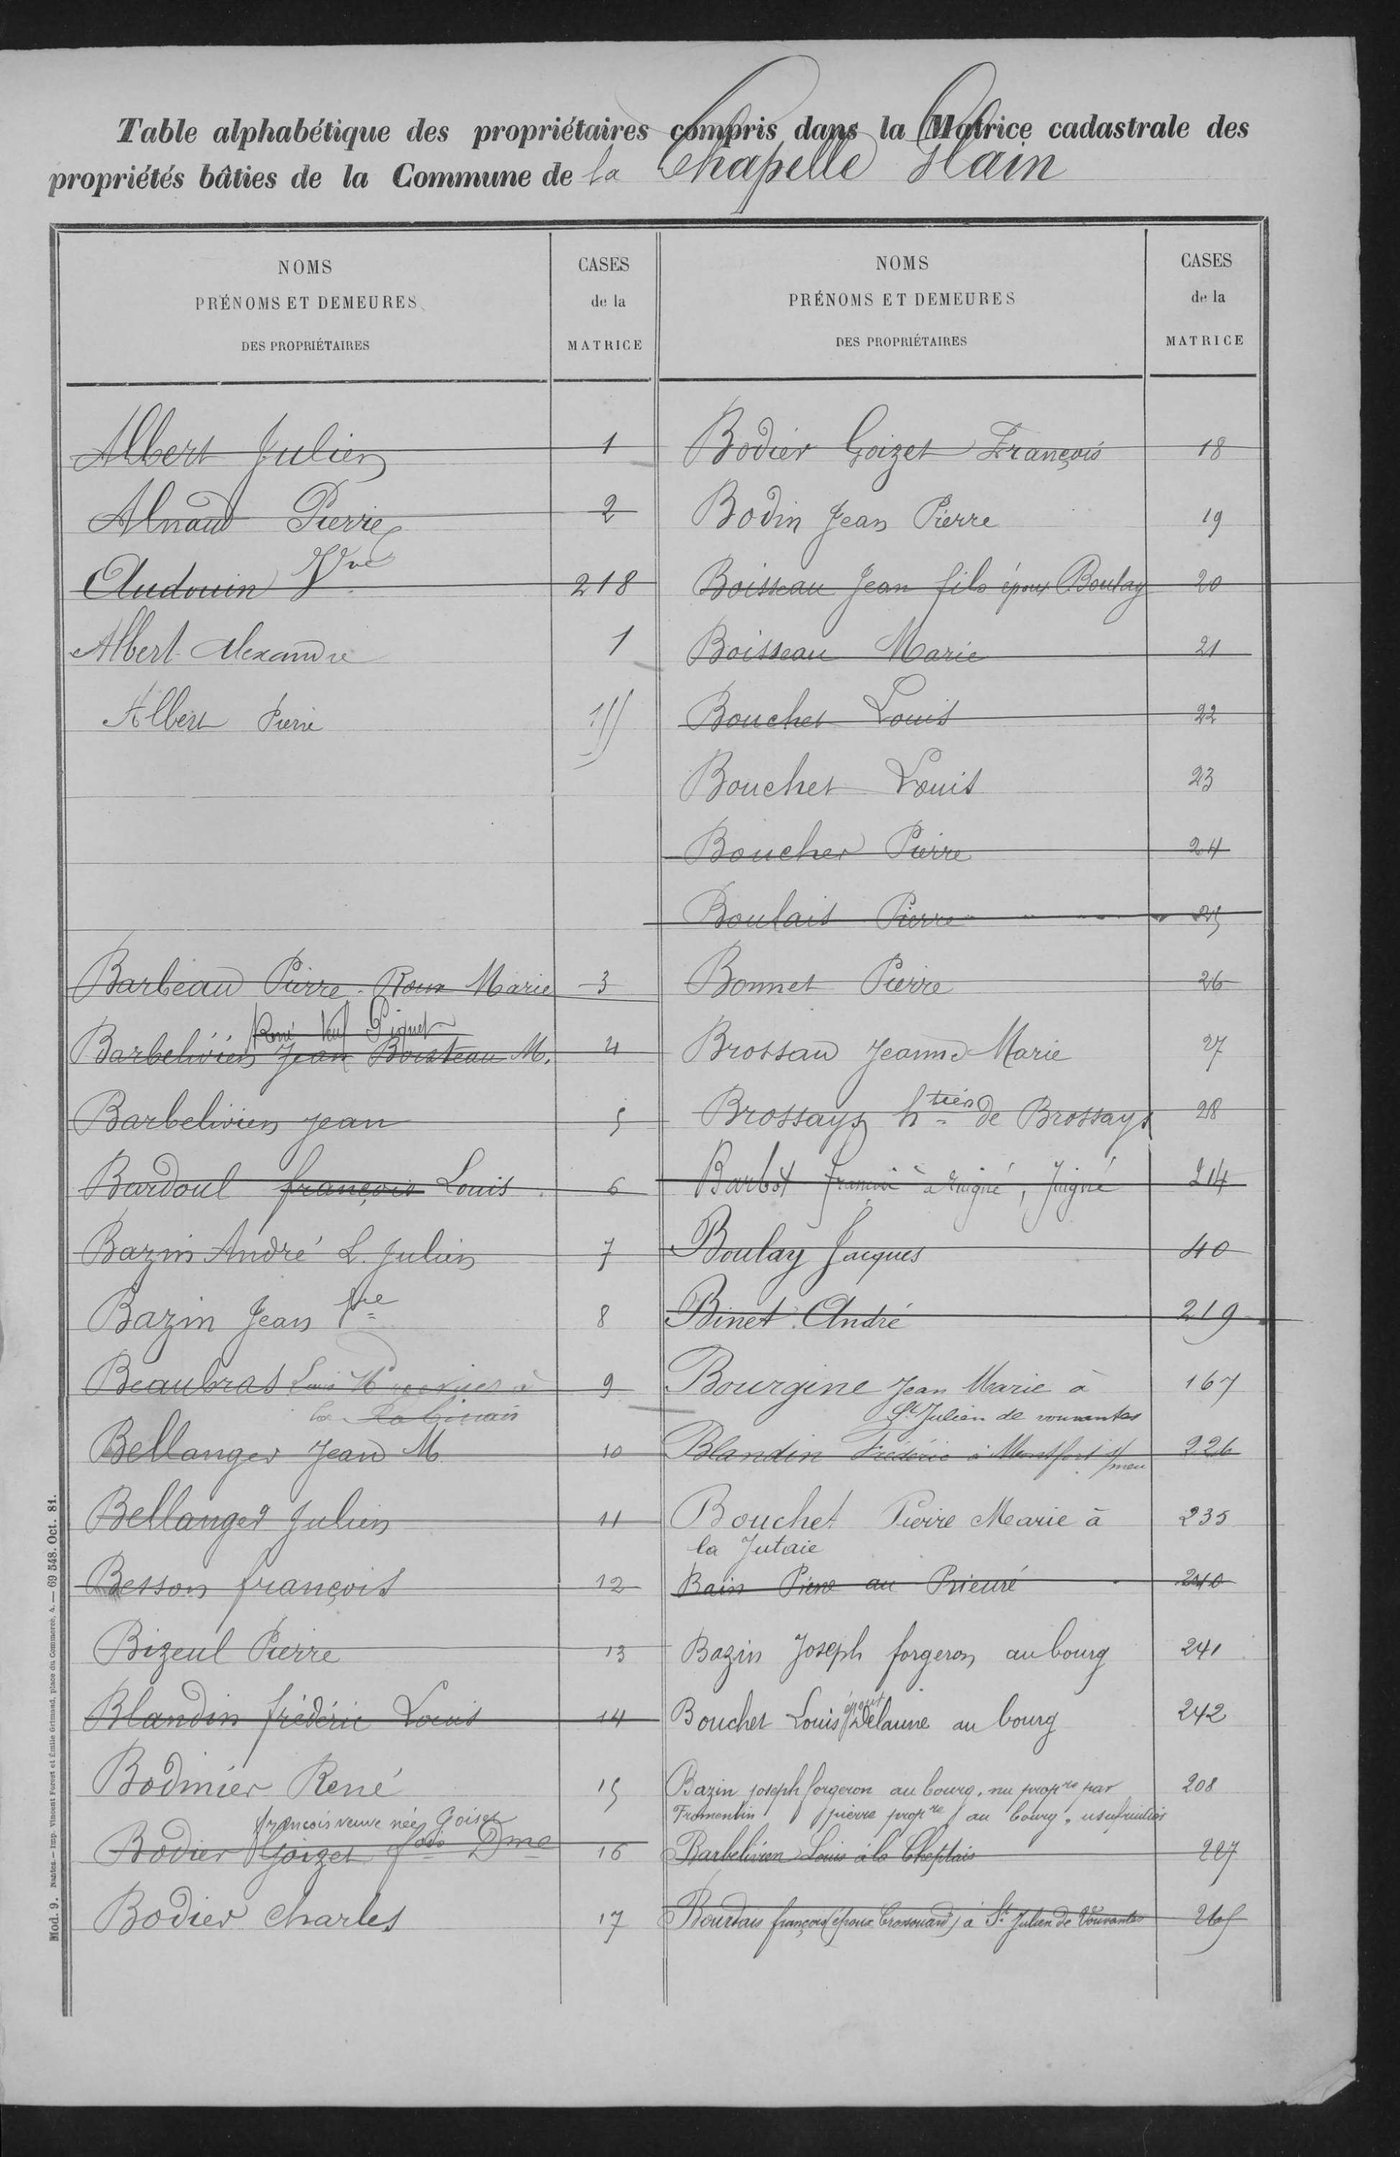 Table alphabétique des propriétaires compris dans la Matrice cadastrale des
propriétés bâties de la Commune de la Chapelle Glain
NOMS
PRÉNOMS ET DEMEURES
DES PROPRIÉTAIRES
CASES
de la
MATRICE
Albert Julien 1
Alnaud Pierre 2
Audouin Vve 218
Albert Alexandre 1
Albert Pierre
Barbeau Pierre Roux Marie 3
René Piquet
Barbelivien Jean Boisteau M. 4
Barbelivien Jean 5
Bardoul françois Louis 6
Bazin André L. Julien 7
Bazin Jean Pre 8
Beaubras Louis à 9
la
Bellanger Jean M 10
Bellanger Julien 11
Besson françois 12
Bizeul Pierre 13
Blandin frédéric Louis 14
Bodinier René 15
françois veuve née Goiset
Bodier Goizet fois Dme 16
Bodier Charles 17
NOMS
PRÉNOMS ET DEMEURES
DES PROPRIÉTAIRES
CASES
de la
MATRICE
Bodier Goizet François 18
Bodin Jean Pierre 19
Boisseau Jean fils époux Boulay 20
Boisseau Marie 21
Bouchet Louis 22
Bouchet Louis 23
Boucher Pierre 24
Boulais Pierre 25
Bonnet Pierre 26
Brossaud Jeanne Marie 27
Brossays htiers de Brossays 28
Barbot françois à Juigné 214
Boulay Jacques 40
Binet André 219
Bourgine Jean Marie à 167
St Julien de vouvantes
Blandin Frédéric à Montfort s/ meu 226
Bouchet Pierre Marie à 235
la Jutaie
Bain Pierre au Prieuré 240
Bazin Joseph forgeron au bourg 241
Bouchet Louis époux Delaune au bourg 242
Bazin joseph forgeron au bourg, nu propre par 208
Fromentin pierre propre au bourg, usufruitier
Barbelivien Louis à la Cheptais 227
Bourdais françois (époux Crossouard) à St Julien de Vouvantes 265
Mod. 9. Nantes.—Imp. Vincent Forest et Émile Grimaud, place du Commerce, 4.—69 548. Oct. 81.